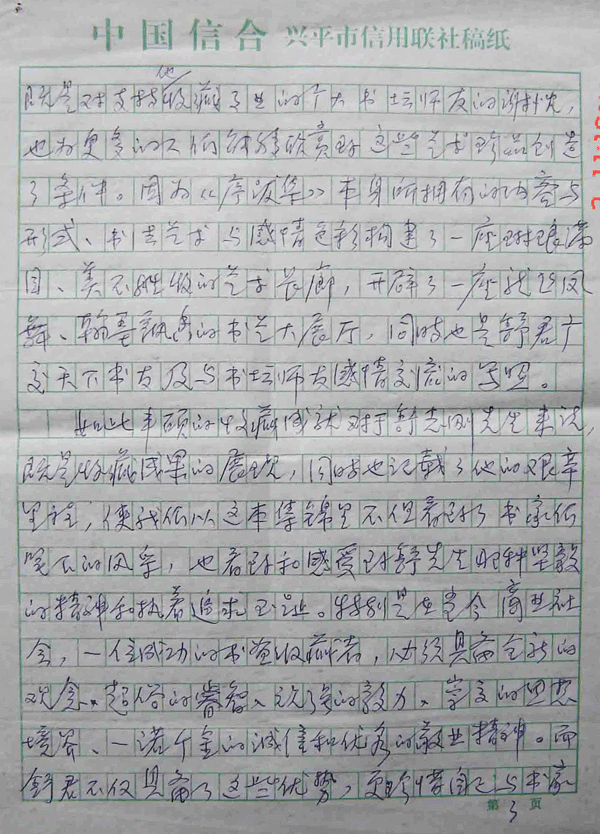 中国信合 兴平市信用联社稿纸
既是对支持他收藏事业的广大书坛师友的谢忱,
也为更多的人们能够欣赏到这些艺术珍品创造
了条件。因为《序跋集》本身所拥有的内容与
形式、书法艺术与感情色彩构建了一座琳琅满
目、美不胜收的艺术长廊,开辟了一座龙飞凤
舞、翰墨飘香的书艺大展厅,同时也是舒君广
交天下书友及与书坛师友感情交流的写照。
如此丰硕的收藏成就对于舒先生来说,
既是收藏成果的展现,同时也记载了他的艰辛
里程,使我们从这本集锦里不但看到了书家们
笔下的风采,也看到和感受到舒先生那种坚毅
的精神和执着追求。特别是在当今商业社
会,一位成功的书画收藏者,必须具备全新的
观念、超俗的睿智、顽强的毅力、崇文的思想
境界、一诺千金的诚信和优秀的敬业精神。而
舒君不仅具备了这些优势,更珍惜自己与书家
第 3 页